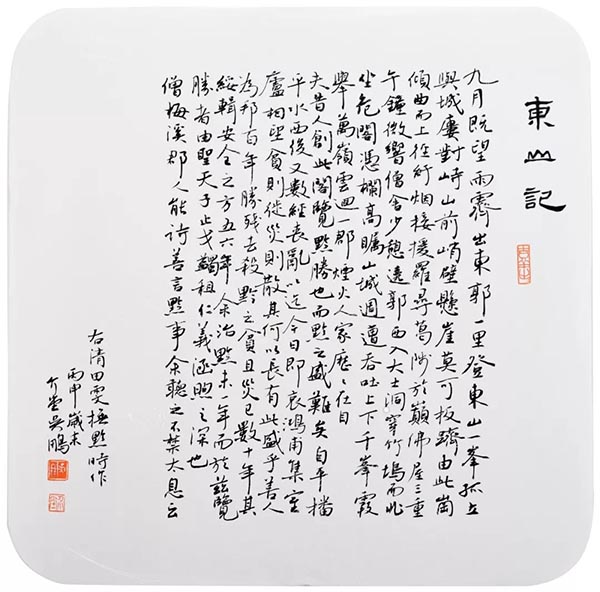 東山記
九月既望雨霽出東郭一里登東山一峯孤立
與城廛對峙山前峭壁懸崖莫可扳躋由此崗
傾曲而上徑紆烟接援羅尋葛陟於巔佛屋三重
午鐘微響僧舍少憩遶郭西入大士洞穿竹塢而北
坐危閣憑欄高矚山城週遭吞吐上下千峯霞
舉萬嶺雲迴一郡煙火人家歷歷在目
夫昔人創此閣覽黔勝也而黔之盛難矣自平播
平水西後又數經喪亂以迄今日即哀鴻甫集室
廬相望貧則徙災則散其何以長有此盛乎善人
為邦百年勝殘去殺黔之貧且災已數十年其
綏輯安全之方五六年余治黔未一年而於茲覽
勝者由聖天子止戈蠲租仁義涵煦之深也
僧梅溪郡人能詩善言黔事余聽之不禁太息云
右清田雯撫黔時作
丙申歲末
介堂吳鵬